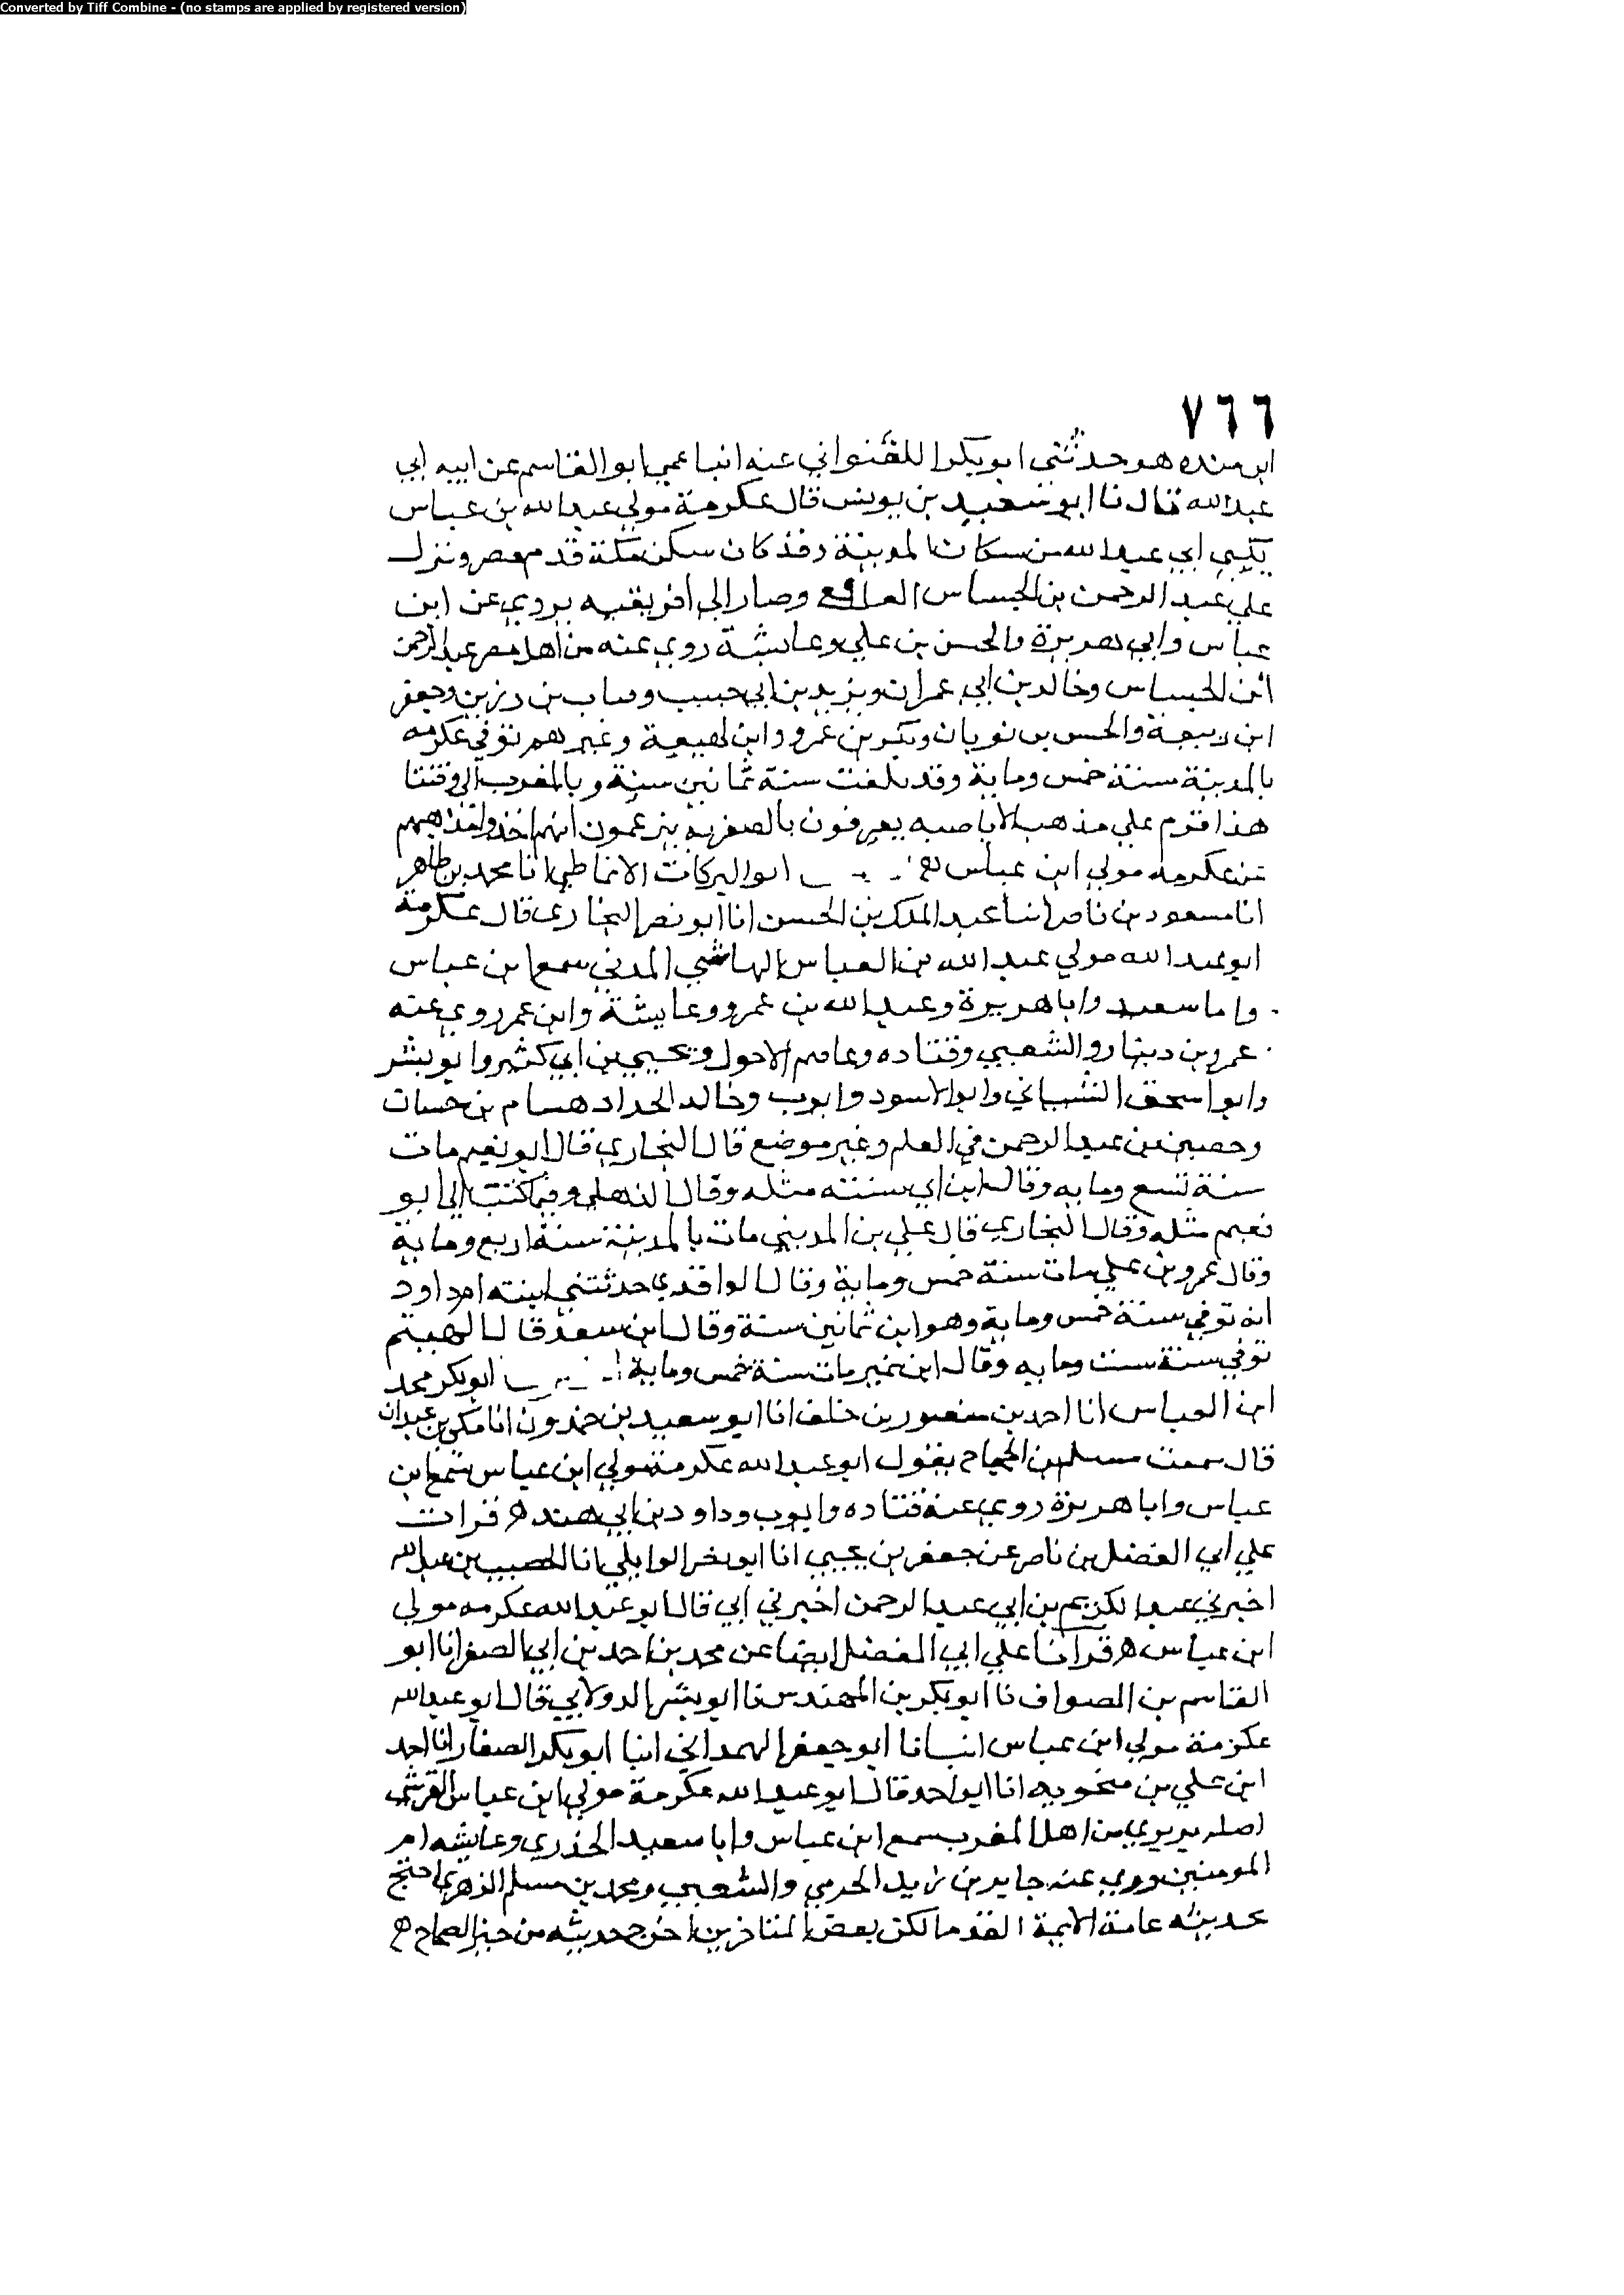 Converted by Tiff Combine - (no stamps are applied by registered version)
٧٦٦
ابن منده ه وحدثني ابو بكر اللفتواني عنه انبا عمي ابو القاسم عن ابيه ابي
عبد الله قال نا ابو سعيد بن يونس قال عكرمة مولي عبد الله بن عباس
يكني ابي عبد الله من سكان المدينة وقد كان سكن مكة قدم مصر ونزل
علي عبد الرحمن بن الجساس وصار الي افريقيه يروي عن ابن
عباس وابي هريرة والحسن بن علي وعايشة روي عنه من اهل مصر عبد الرحمن
ابن الجساس وخالد بن ابي عمران ويزيد بن ابي حبيب بن رزين وجعفر
ابن ربيعة والحسن بن ثوبان وبكر بن عمرو وابن لهيعة وغيرهم توفي عكرمه
بالمدينة سنة خمس وماية وقد بلغت سنة ثمانين سنة وبالمغرب الي وقتنا
هذا قوم علي مذهب الاباضيه يعرفون بالصفريه يزعمون انهم اخذوا مذهبهم
عن عكرمه مولي ابن عباس ابو البركات الانماطي انا محمد بن طاهر
انا مسعود بن ناصر انبا عبد الملك بن الحسن انا ابو نصر البخاري قال عكرمة
ابو عبد الله مولي عبد الله بن العباس الهاشمي المدني سمع ابن عباس
وابا سعيد وابا هريرة وعبد الله بن عمرو وعايشة وابن عمر روي عنه
عمرو بن دينار والشعبي وقتاده وعاصم الاحول ويحيي بن ابي كثير وابو بشر
وابو اسحق الشيباني وابو الاسود وايوب وخالد الحداد هسام بن حسان
وحصين بن عبد الرحمن في العلم وغير موضع قال البخاري قال ابو نعيم مات
سنة تسع وماية وقال ابن ابي مثله وقال الذهلي وفيما كتب الي ابو
نعيم مثله وقال البخاري قال علي بن المديني مات بالمدينة سنة اربع وماية
وقال عمرو بن علي مات سنة خمس وماية وقال الواقدي حدثتني ابنته ام داود
انه توفي سنة خمس وماية وهو ابن ثمانين سنة وقال ابن سعد قال الهيثم
توفي سنة ست وماية وقال ابن نمير مات سنة خمس وماية ابو بكر محمد
ابن العباس انا احمد بن منصور بن خلف انا ابو سعيد بن حمدون انا مكي بن عبدان
قال سمعت مسلم بن الحجاج يقول ابو عبد الله عكرمة مولي ابن عباس سمع ابن
عباس وابا هريرة روي عنه قتاده وايوب وداود بن ابي هند ه قرات
علي ابي الفضل بن ناصر عن جعفر بن يحيي انا ابو نصر الوايلي انا الخصيب بن عبد الله
اخبرني عبد الكريم بن ابي عبد الرحمن اخبرني ابي قال ابو عبد الله عكرمه مولي
ابن عباس ه قرانا علي ابي الفضل ايضا عن محمد بن احمد بن ابي الصقر انا ابو
القاسم بن الصواف نا ابو بكر بن المهندس نا ابو بشر الدولابي قال ابو عبد الله
عكرمة مولي ابن عباس انبانا ابو جعفر الهمداني انبا ابو بكر الصفار انا احمد
ابن علي بن منجويه انا ابو احمد قال ابو عبد الله عكرمة مولي ابن عباس القرشي
اصله بربري من اهل المغرب سمع ابن عباس وابا سعيد الخدري وعايشه ام
المومنين روي عنه جابر بن زيد الحرمي والشعبي ومحمد بن مسلم الزهري احتج
بحديثه عامة الايمة القدما لكن بعض المتاخرين اخرج حديثه من حيز الصحاح ه